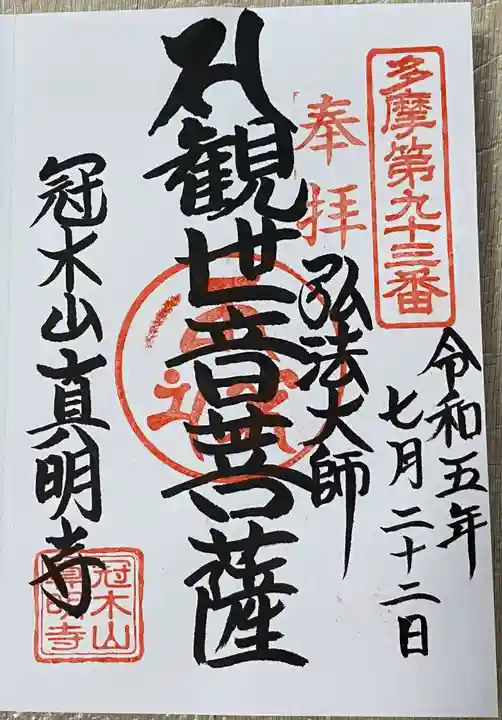 多摩第九十三番
令和五年
七月二十二日
奉拝
弘法大師
観世音菩薩
冠木山真明寺
冠木山
真明寺